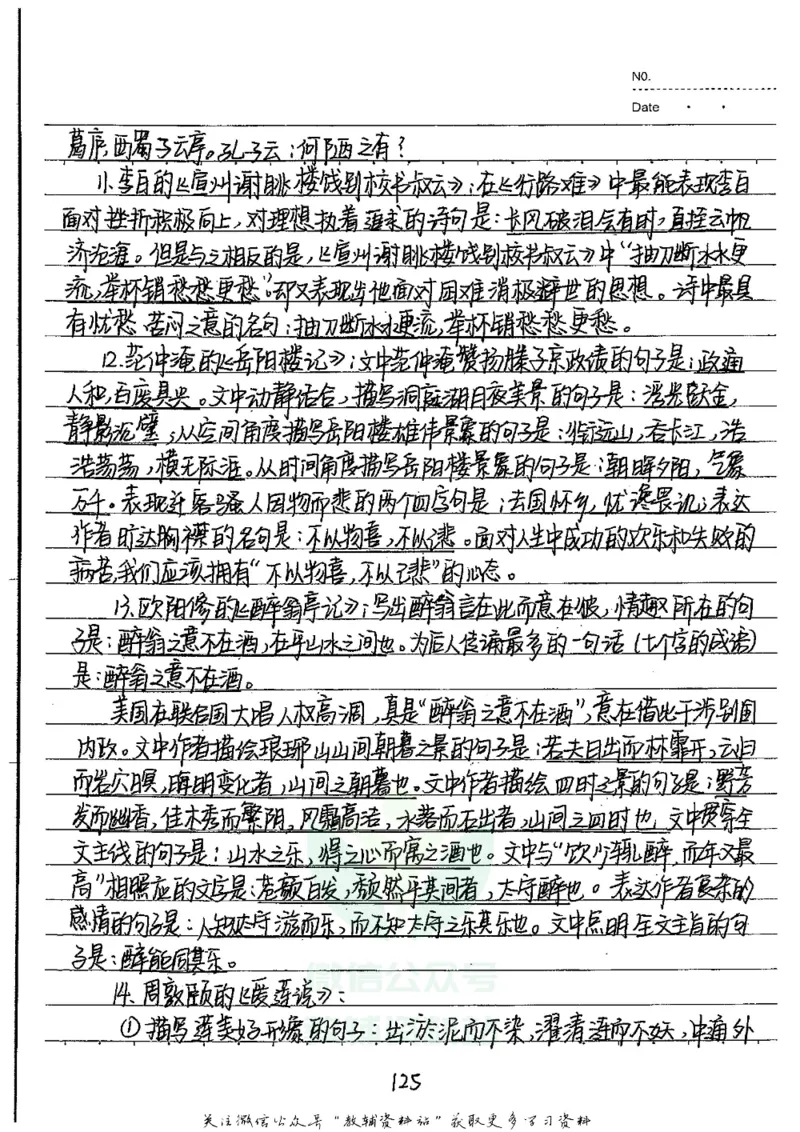 NO.
Date
葛庐,西蜀子云亭。孔子云:何陋之有?
11.李白的《宣州谢朓楼饯别校书叔云》:在《行路难》中最能表现李白
面对挫折积极向上,对理想执着追求的诗句是:长风破浪会有时,直挂云帆
济沧海。但是与之相反的是,《宣州谢朓楼饯别校书叔云》中“抽刀断水水更
流,举杯销愁愁更愁”却又表现出他面对困难消极避世的思想。诗中最具
有忧愁苦闷之意的名句:抽刀断水水更流,举杯销愁愁更愁。
12.范仲淹的《岳阳楼记》:文中范仲淹赞扬滕子京政绩的句子是:政通
人和,百废具兴。文中动静结合,描写洞庭湖月夜美景的句子是:浮光跃金,
静影沉璧;从空间角度描写岳阳楼雄伟景象的句子是:衔远山,吞长江,浩
浩荡荡,横无际涯。从时间角度描写岳阳楼景象的句子是:朝晖夕阴,气象
万千。表现迁客骚人因物而悲的两个四字句是:去国怀乡,忧谗畏讥;表达
作者旷达胸襟的名句是:不以物喜,不以己悲。面对人生中成功的欢乐和失败的
痛苦,我们应该拥有“不以物喜,不以己悲”的心态。
13.欧阳修的《醉翁亭记》:写出醉翁言在此而意在彼,情趣所在的句
子是:醉翁之意不在酒,在乎山水之间也。为后人传诵最多的一句话(七个字的成语)
是:醉翁之意不在酒。
美国在联合国大唱人权高调,真是“醉翁之意不在酒”,意在借此干涉别国
内政。文中作者描绘琅琊山山间朝暮之景的句子是:若夫日出而林霏开,云归
而岩穴暝,晦明变化者,山间之朝暮也。文中作者描绘四时之景的句子是:野芳
发而幽香,佳木秀而繁阴,风霜高洁,水落而石出者,山间之四时也,文中贯穿全
文主线的句子是:山水之乐,得之心而寓之酒也。文中与“饮少辄醉,而年又最
高”相照应的文字是:苍颜白发,颓然乎其间者,太守醉也。表达作者复杂的
感情的句子是:人知从太守游而乐,而不知太守之乐其乐也。文中点明全文主旨的句
子是:醉能同其乐。
14.周敦颐的《爱莲说》:
①描写莲美好形象的句子:出淤泥而不染,濯清涟而不妖,中通外
125
微信公众号
关注微信公众号“教辅资料站”获取更多学习资料